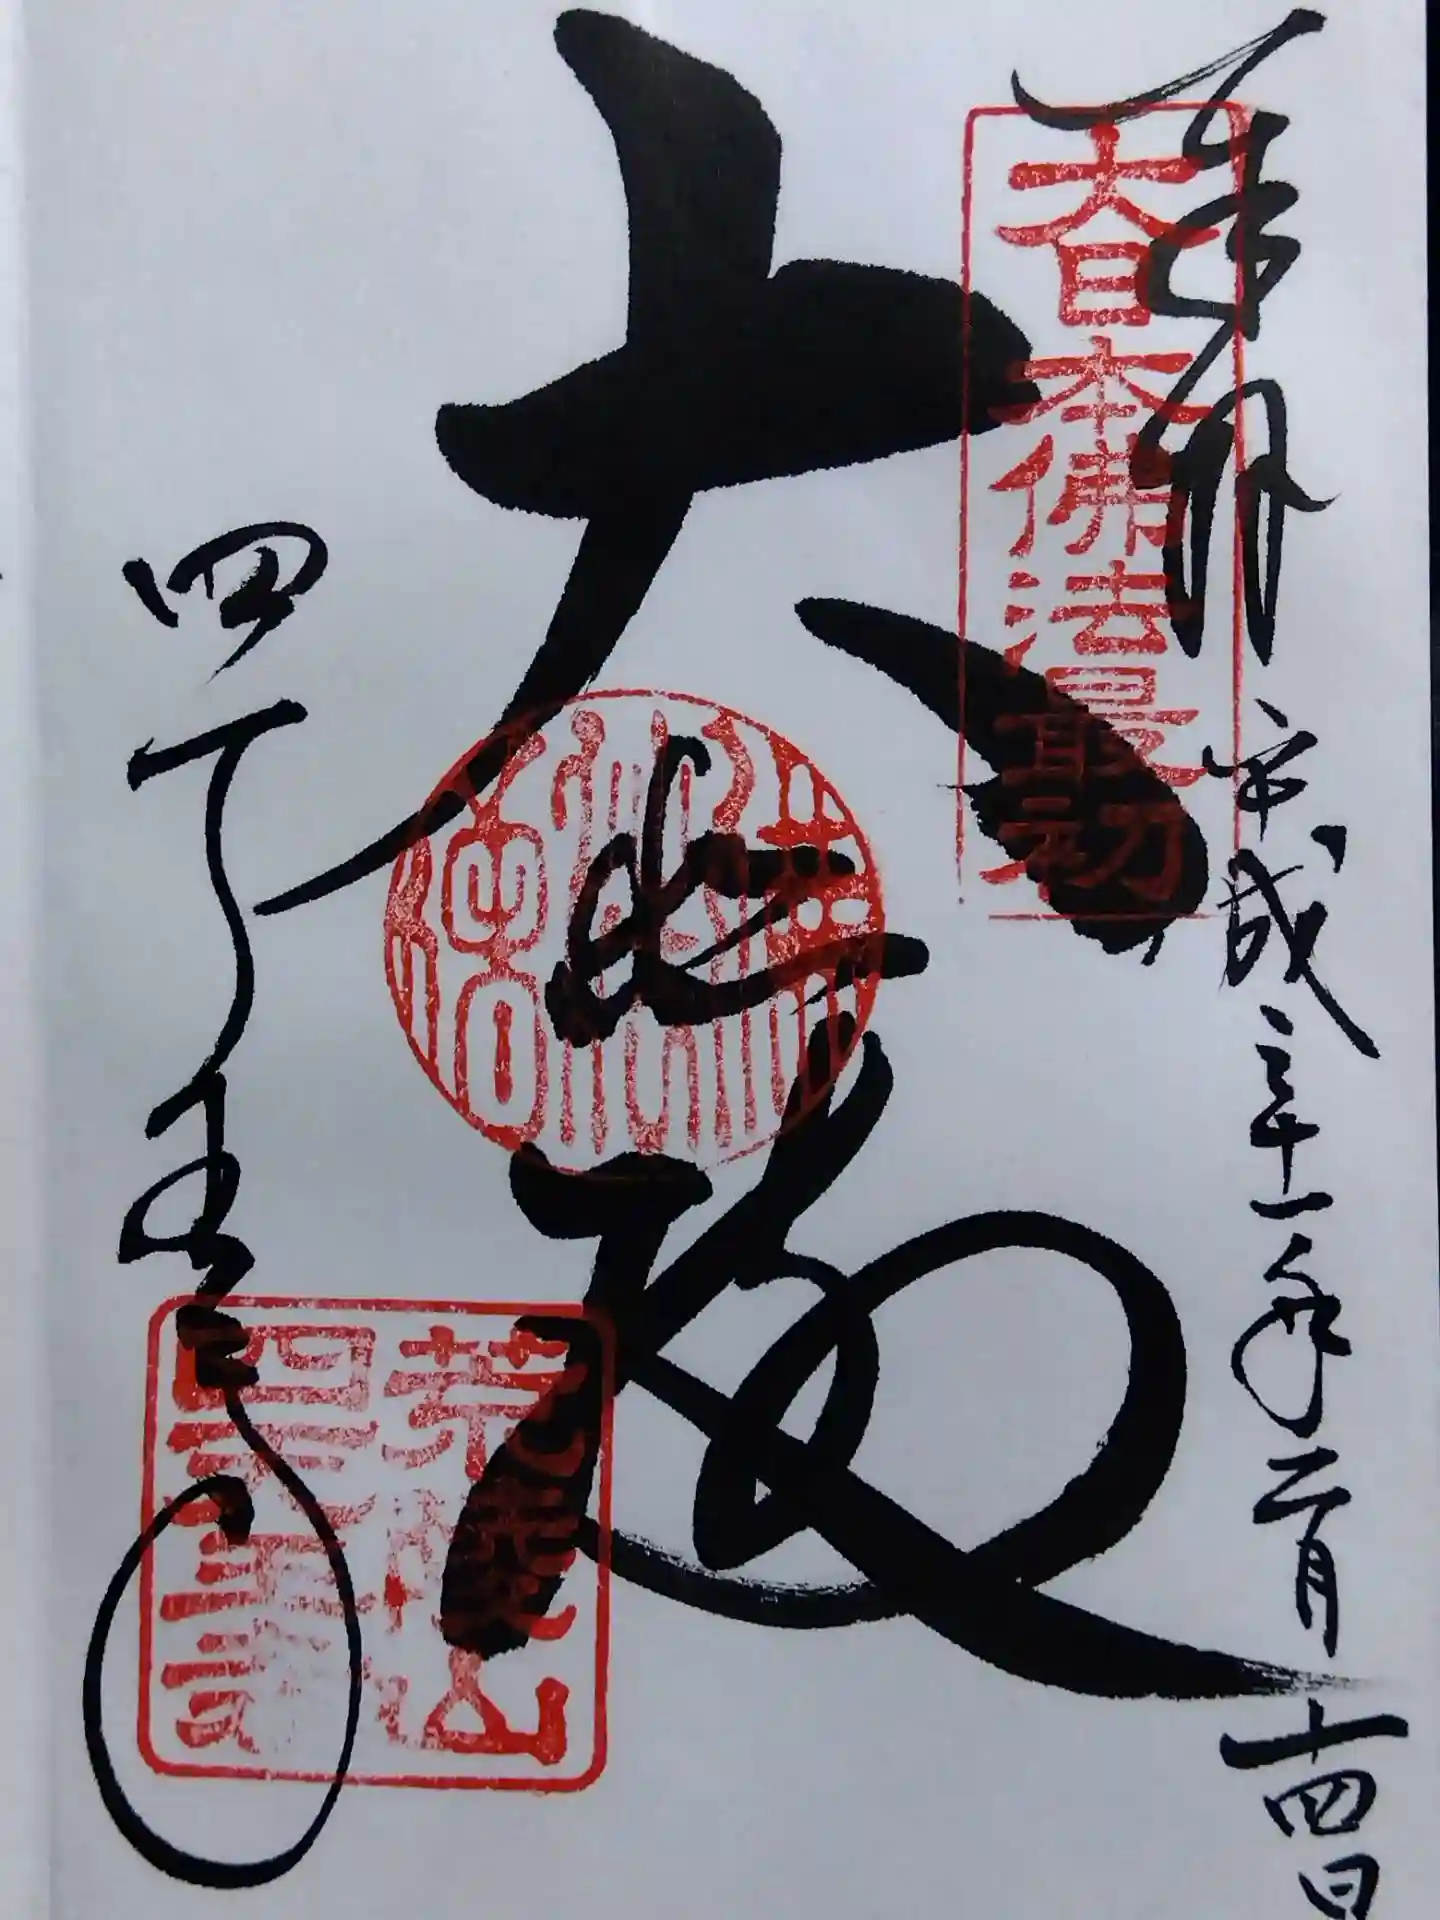 奉拝
平成三十一年二月十四日
大日本佛法最初
大悲殿
四天王寺
荒陵山
四天王寺